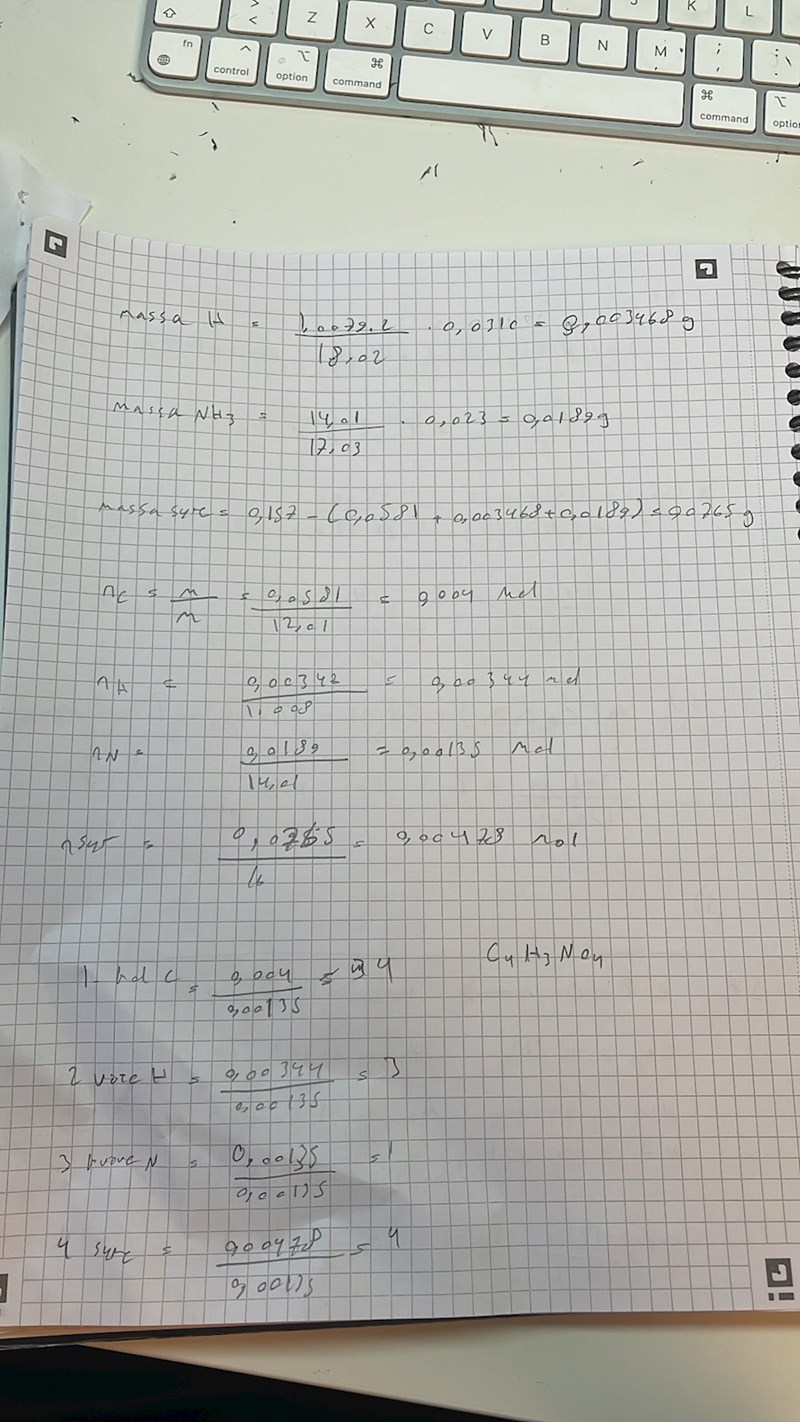 Z X C V B N M K L
fn control option command command optio
massa H = 1,0079.2 / 18,02 · 0,0310 = 0,003468 g
massa NH3 = 14,01 / 17,03 · 0,023 = 0,0189 g
massa syre = 0,157 - (0,0581 + 0,003468 + 0,0189) = 0,0765 g
nC = m / m = 0,0581 / 12,01 = 0,004 mol
nH = 0,00347 / 1,008 = 0,00344 mol
nN = 0,0189 / 14,01 = 0,00135 mol
nsyr = 0,0765 / 16 = 0,00478 mol
C4H3NO4
C = 0,004 / 0,00135 = 4
2 H = 0,00344 / 0,00135 = 3
3 N = 0,00135 / 0,00135 = 1
4 syre = 0,00478 / 0,00135 = 4